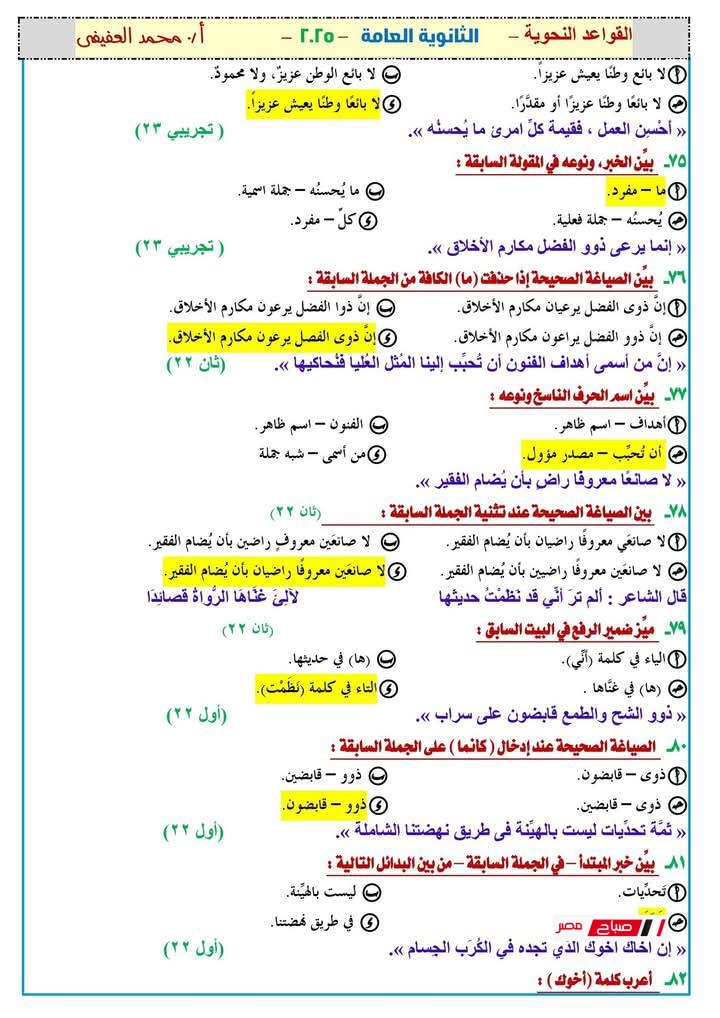 القواعد النحوية – الثانوية العامة – ٢٠٢٥ – أ/ محمد العفيفى
أ لا بائع وطنًا يعيش عزيزاً. ب لا بائع الوطن عزيزٌ، ولا محمودٌ.
جـ لا بائعًا وطنًا عزيزًا أو مقدَّرًا. د لا بائعًا وطنًا يعيش عزيزاً.
« أحْسِن العمل ، فقيمة كلِّ امرئ ما يُحسنْه ». ( تجريبي ٢٣)
٧٥ـ بيِّن الخبر، ونوعه في المقولة السابقة :
أ ما – مفرد. ب ما يُحسنُه – جملة اسمية.
جـ يُحسنُه – جملة فعلية. د كلّ – مفرد.
« إنما يرعى ذوو الفضل مكارم الأخلاق ». ( تجريبي ٢٣)
٧٦ـ بيِّن الصياغة الصحيحة إذا حذفت (ما) الكافة من الجملة السابقة :
أ إنَّ ذوى الفضل يرعيان مكارم الأخلاق. ب إنَّ ذوا الفضل يرعون مكارم الأخلاق.
جـ إنَّ ذوو الفضل يراعون مكارم الأخلاق. د إنَّ ذوى الفصل يرعون مكارم الأخلاق.
« إنَّ من أسمى أهداف الفنون أن تُحبِّب إلينا المُثل العُليا فتُحاكيها ». (ثان ٢٢)
٧٧ـ بيِّن اسم الحرف الناسخ ونوعه :
أ أهداف – اسم ظاهر. ب الفنون – اسم ظاهر.
جـ أن تُحبِّب – مصدر مؤول. د من أسمى – شبه جملة
« لا صانعًا معروفًا راضٍ بأن يُضام الفقير ».
٧٨ـ بين الصياغة الصحيحة عند تثنية الجملة السابقة : (ثان ٢٢)
أ لا صانعَي معروفًا راضيان بأن يُضام الفقير. ب لا صانعَين معروفٍ راضين بأن يُضام الفقير.
جـ لا صانعَين معروفًا راضيين بأن يُضام الفقير. د لا صانعَين معروفًا راضيان بأن يُضام الفقير.
قال الشاعر : ألم ترَ أنّي قد نَظَمْتُ حديثها لآلِئَ غنَّاهَا الرُّواةُ قصائِدَا
٧٩ـ ميِّز ضمير الرفع في البيت السابق : (ثان ٢٢)
أ الياء في كلمة (أنّي). ب (ها) في حديثها.
جـ (ها) في غنَّاها . د التاء في كلمة (نَظَمْتِ).
« ذوو الشح والطمع قابضون على سراب ». (أول ٢٢)
٨٠ـ الصياغة الصحيحة عند إدخال ( كانما ) على الجملة السابقة :
أ ذوى – قابضون. ب ذوو – قابضين.
جـ ذوى – قابضين. د ذوو – قابضون.
« ثمَّة تحدِّيات ليست بالهيِّنة فى طريق نهضتنا الشاملة ». (أول ٢٢)
٨١ـ بيِّن خبر المبتدأ – في الجملة السابقة – من بين البدائل التالية :
أ تَحدِّيات. ب ليست بالهيِّنة.
جـ صباح مصر د في طريق نهضتنا.
« إن اخاك اخوك الذي تجده في الكُرَب الجسام ». (أول ٢٢)
٨٢ـ أعرب كلمة (أخوك ) :